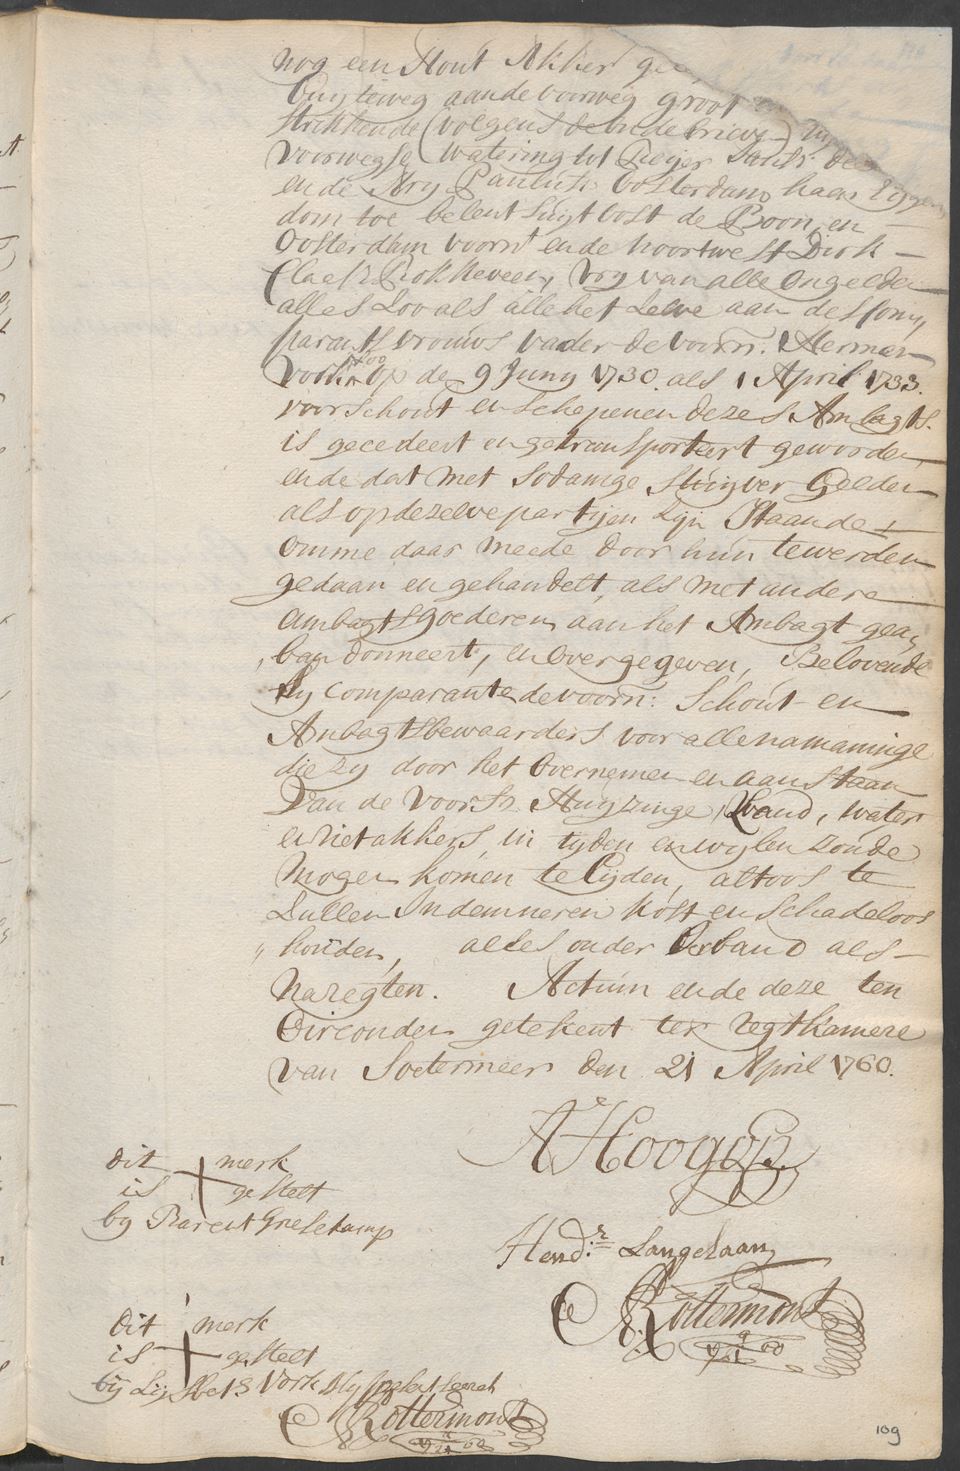 nog een Hout Akker
buyteweg aande voorweg groot
strekkende (volgens de oude brieve)
Voorwegse Watering tot
ende Ary Paulusz Oosterdam haar Eygen
dom toe belent Suyt oost de Boon, en
Oosterdam voorn.t ende noortwest Dirk
Claesz Rokkeveen, Vry van alle Ongelden
alles zoo als alle het zelve aan des Com,
parants vrouws vader de voorn: Hermen
Vork zoo op de 9 Juny 1730. als 1 April 1733.
voor schout en schepenen dezes Ambagts.
is gecedeert en getransporteert geworden
ende dat met sodanige stuyver Gelden
als op dezelve partyen zijn Staande
Omme daar meede door hun te werden
gedaan en gehandelt, als met andere
Ambagts goederen aan het Ambagt gea,
bandonneert, en overgegeven, Belovende
Hy comparante de voorn: Schout en
Ambagtsbewaarders voor alle namaninge
die zy door het overnemen en aanstaan
van de voorsz. Huyzinge, Land, water
en rietakkers, in tyden en wylen zoude
mogen komen te lyden, altoos te
zullen Indemneren kost en schadeloos
„houden, alles onder Verband als
Naregten. Actum ende deze ten
Oirconden getekent ter regtkamere
van Soetermeer den 21 April 1760.
A Hoogop
dit merk
is gestelt
by Barent Grelekamp
Hend:r Langelaan
Rottermont
dit merk
is gestelt
bij Lijsbet Vork
Rottermont
109